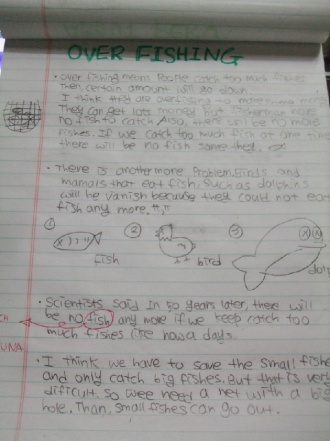 OVER FISHING
• Over fishing means People catch too much fishes
then certain amount will go down.
I think they are overfishing to make more money
They can get lots money but
no fish to catch. Also, there will be no more
fishes. If we catch too much fish at one time
there will be no fish some they.
• There is another more Problem. Birds and
mamals that eat fish, such as dolphins
will be vanish because they could not eat
fish any more.
① ② ③
fish bird dol
• Scientists said In 50 years later, there will
be no fish any more if we keep catch too
much fishes like now a days.
UNA
• I think we have to save the small fishe
and only catch big fishes. But that is very
difficult. So wee need a net with a big
hole. Than, small fishes can go out.